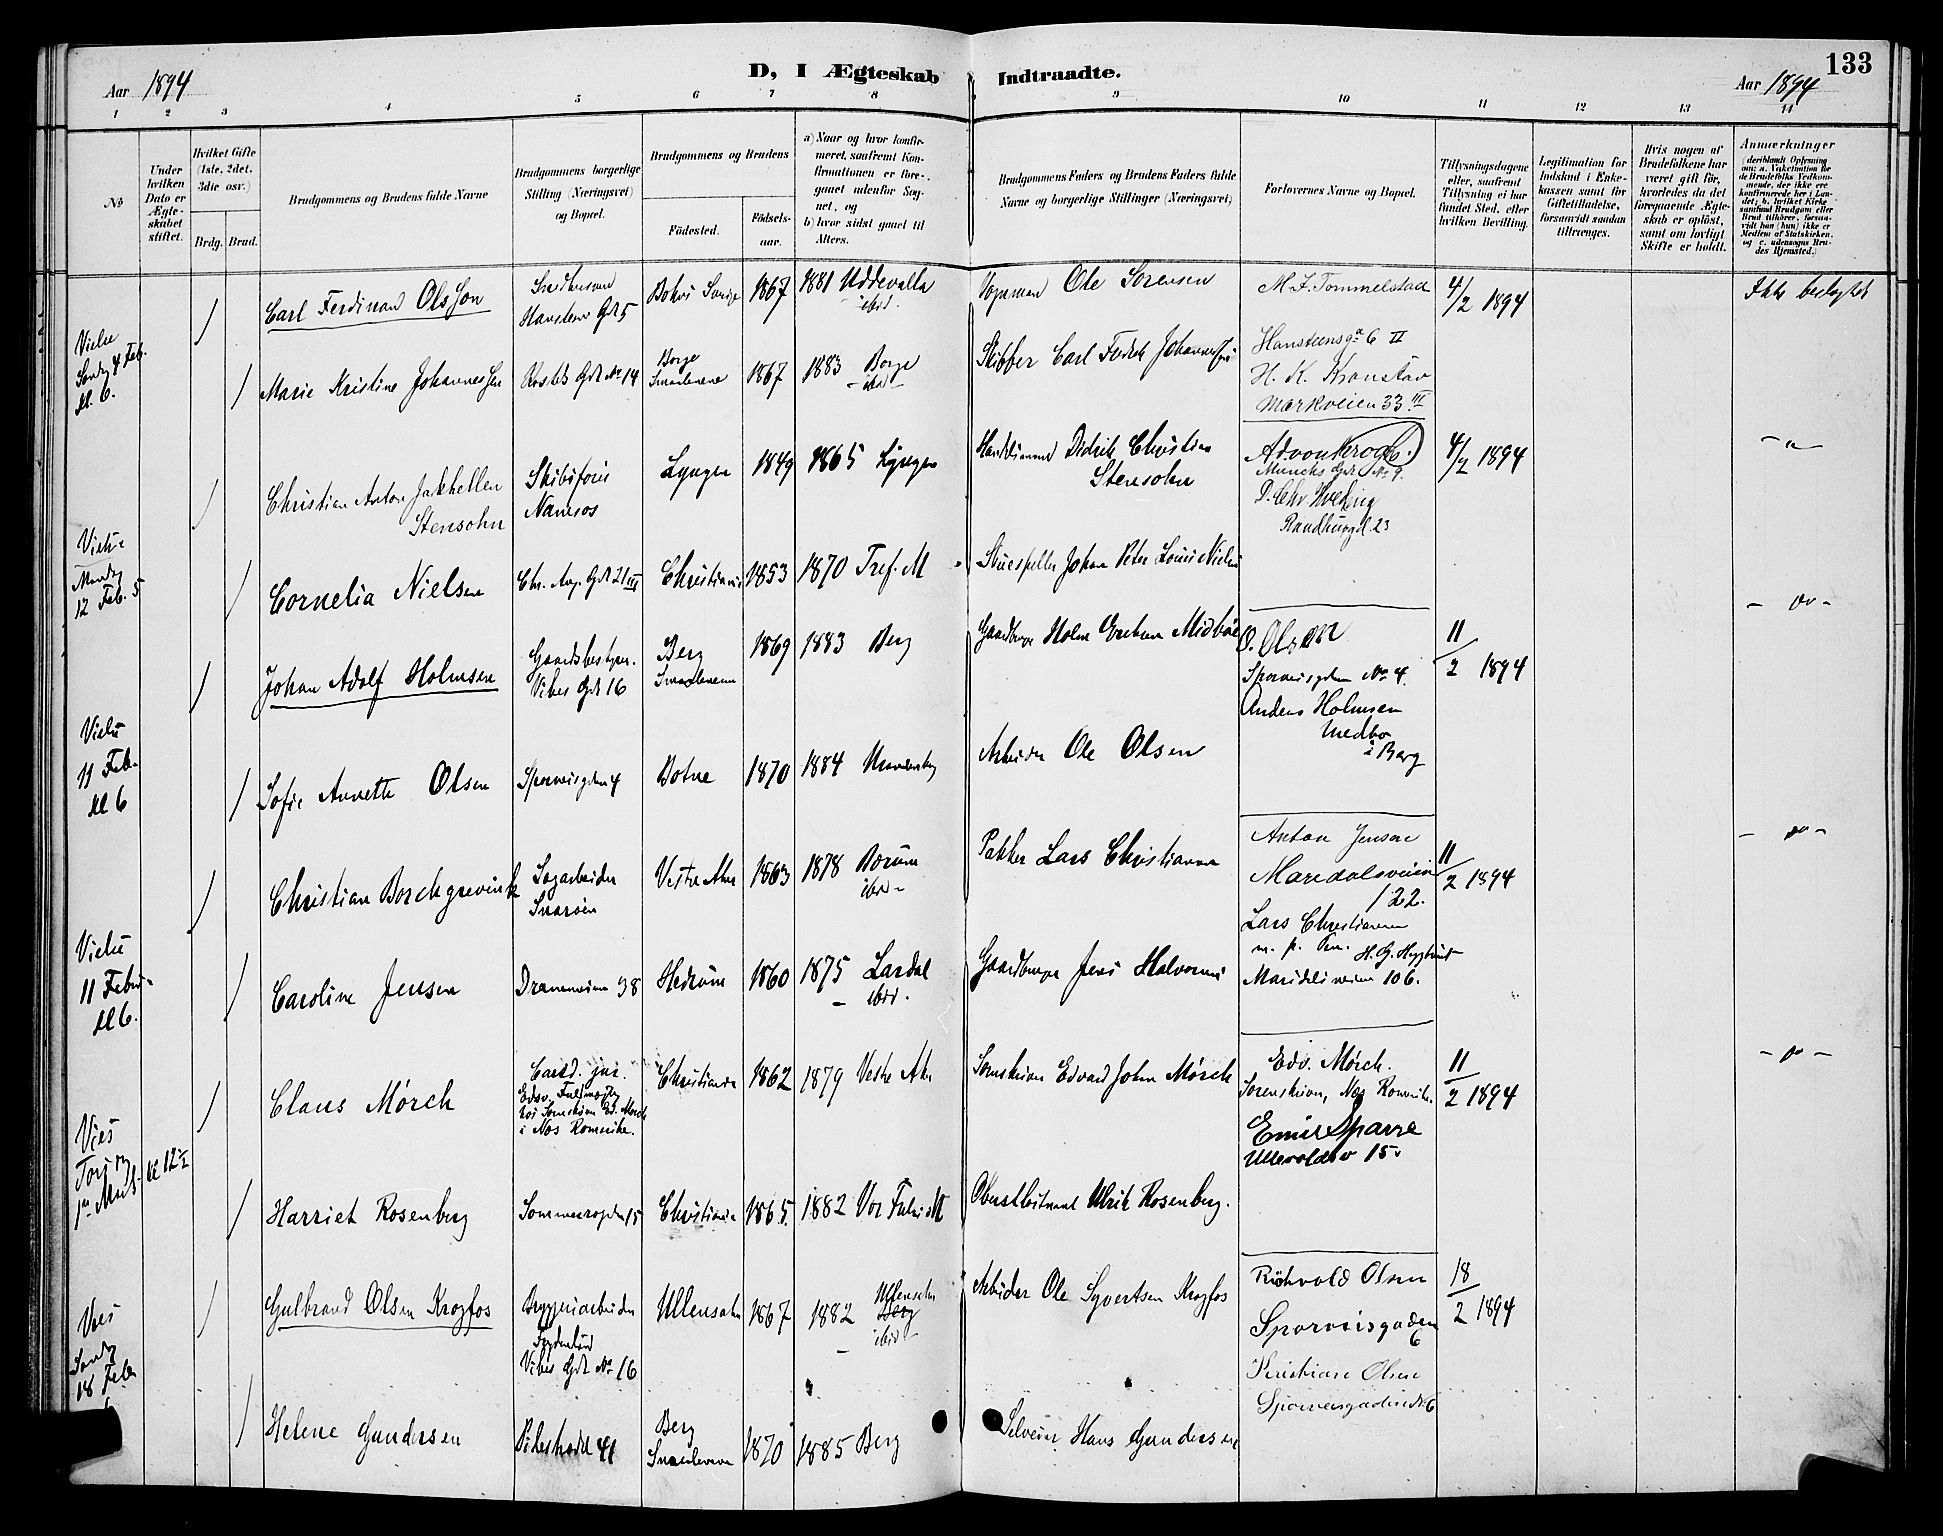 133
Aar 1894
D, I Ægteskab Indtraadte.
Aar 1894
1 2 3 4 5 6 7 8 9 10 11 12 13 14
No
Under hvilken Dato er Ægteskabet stiftet.
Hvilket Gifte (1ste, 2det, 3die osv.)
Brdg. Brud.
Brudgommens og Brudens fulde Navne
Brudgommens borgerlige Stilling (Næringsvei) og Bopæl.
Brudgommens og Brudens
Födested.
Födselsaar.
a) Naar og hvor konfirmeret, saafremt Konfirmationen er foregaaet udenfor Sognet, og
b) hvor sidst gaaet til Alters.
Brudgommens Faders og Brudens Faders fulde Navne og borgerlige Stillinger (Næringsvei)
Forlovernes Navne og Bopæl.
Tillysningsdagene eller, saafremt Tillysning ei har fundet Sted, efter hvilken Bevilling.
Legitimation for Indskud i Enkekassen samt for Giftetilladelse, forsaavidt saadan tiltrænges.
Hvis nogen af Brudefolkene har været gift før, hvorledes da det foregaaende Ægteskab er oplöst, samt om lovligt Skifte er holdt.
Anmærkninger
(deriblandt Oplysning om: a. Vaksination for de Brudefolks Vedkommende, der ikke ere konfirmerede her i Landet; b. hvilket Kirkesamfund Brudgom eller Brud tilhører, forsaavidt han (hun) ikke er Medlem af Statskirken, og c. udensogns Brudes Hjemsted.)
Carl Ferdinand Olsson
Hansteens Gd 5
1867
1881 Uddevalla
ibid.
Ole Sorensen
M. F. Tommelstad
4/2 1894
Ikke beslegtet
4 Feb.
Kl. 6.
Marie Kristine Johannessen
No 14
Borge
Smaalenene
1867
1883 Borge
ibid
Skipper Carl Fredrik Johannessen
Hansteensg 6 II
H. K. Kranstav
Markveien 33 III
Christian Anton Jakhellen
Stensohn
Namsos
Lyngen
1849
1865 Lyngen
Didrik Christian
Stensohn
Munchs Gd No 9.
4/2 1894
23
12 Feb. 5
Cornelia Nielsen
Chr. Aug. Gd 21 III
Christiania
1853
1870 Tref. M
Johan Peter Louis Nielsen
- do -
Johan Adolf Holmsen
Gaardsbestyrer.
Vibes Gd 16
Berg
Smaalenene
1869
1883 Berg
O. Olsen
Sporveisgaden No 4.
Anders Holmsen
Medbo
i Berg
11/2 1894
11 Feb.
Kl 6
Sofie Annette Olsen
Sporveisgden 4
Botne
1870
1884
Arbeider Ole Olsen
Christian Borchgrevink
Sagarbeider
Snarøen
Vestre Aker
1863
1878 Bærum
ibid -
Pakker Lars Christiansen
Anton Jensen
Maridalsveien
122.
11/2 1894
- do -
11 Febr.
Kl 6.
Caroline Jensen
Drammensveien 38
Hedrum
1860
1875 Lardal
ibid.
Gaardbruger Jens Halvorsen
Lars Christiansen
m. p. Pen.
Maridalsveien 106.
Claus Mørch
Cand. jur.
i Nes Romerike.
Christiania
1862
1879 Vestre Aker
Sorenskriver Edvard John Mørch
Edv. Mørch.
Sorenskriver, Nes Romerike.
Emil Sparre
Ullevoldsv 15.
11/2 1894
- do -
Kl 12½
Harriet Rosenberg
Sommerrogaden 15
Christiania
1865.
1882 Vor Frels. M
Oberstleitnant Ulrik Rosenberg.
Gulbrand Olsen Krogfos
Bryggeriarbeider
Frydenlund
Vibes Gd No 16
Ullensaker
1867
1882 Ullensaker
Berg
ibid -
Arbeider Ole Syvertsen Krogfos
Olsen
Sporveisgaden
6
Kristian Olsen
18/2 1894
18 Feb.
Helene Gundersen
Pilestrædet 41
Berg
Smaalenene
1870
1885 Berg
Selveier Hans Gundersen